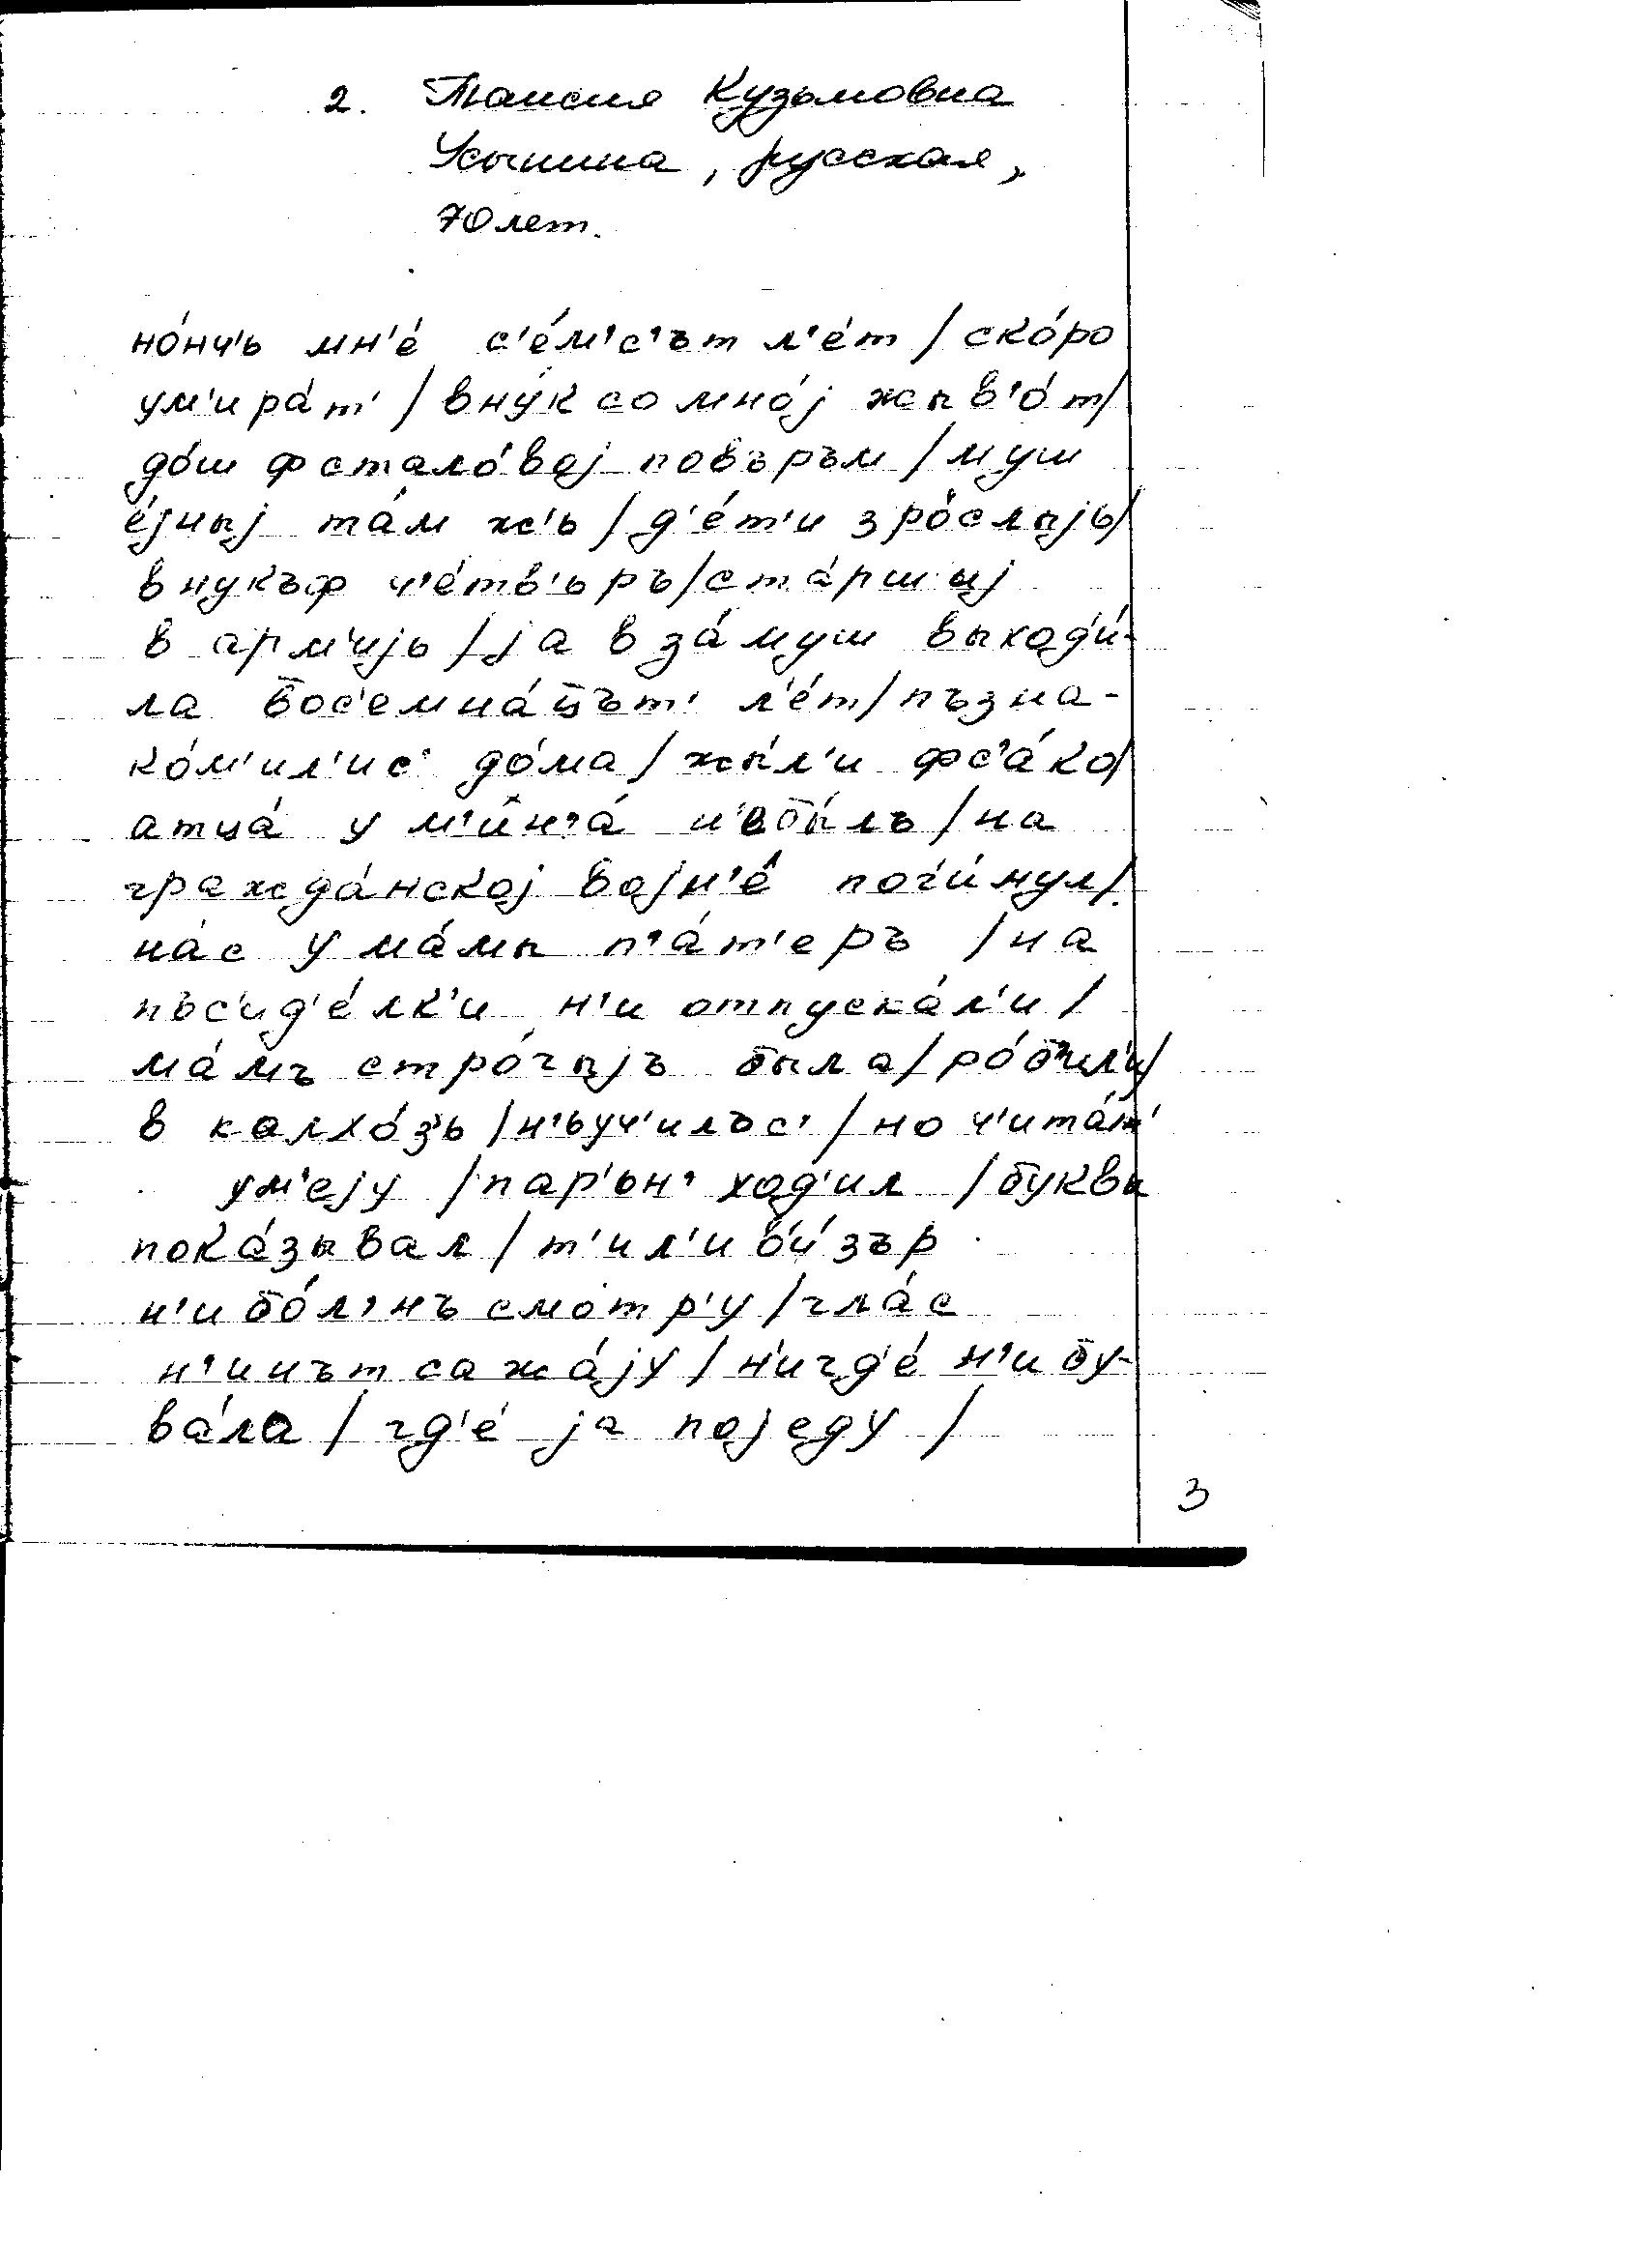 2. Таисия Кузьмовна
Усынина, русская,
70 лет.
но́нч'ь мн'е́ с'е́м'с'ът л'е́т / ско́ро
ум'ира́т' / вну́к со мно́j жыв'о́т /
до́ш ф стало́воj повъръм / муш
е́jныj та́м ж'ь / д'е́т'и зро́слыjь /
внукъф ч'е́тв'ьръ / ста́ршыj
в арм'иjь / jа в за́муш выход'и́-
ла вос'емна́цът' л'е́т / пъзна-
ко́м'ил'ис' до́ма / жы́л'и фс'а́ко /
атца́ у м'ин'а́ н'ебы́лъ / на
гражда́нскоj воjн'е́ пог'и́нул /
на́с у ма́мы п'а́т'еръ / на
пъс'ид'е́лк'и н'и отпуска́л'и /
ма́мъ стро́гыjъ была / ро́б'ил'и /
в колхо́з'ь / н'ьуч'илъс' / но ч'ита́т'
ум'еjу / пар'ьн' ход'ил / буквы
пока́зывал / т'ил'ив'и́зър
н'и бо́л'нъ смотр'у / гла́с
н'и
са жа́jу / н'игд'е́ н'и бу-
ва́ла / гд'е́ jа поjеду /
3